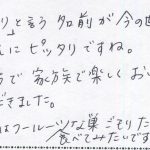 り」と言う名前が今の
にピッタリですね。
で家族で楽しくお
だきました。
はフルーツな巣ごもり
食べてみたいです